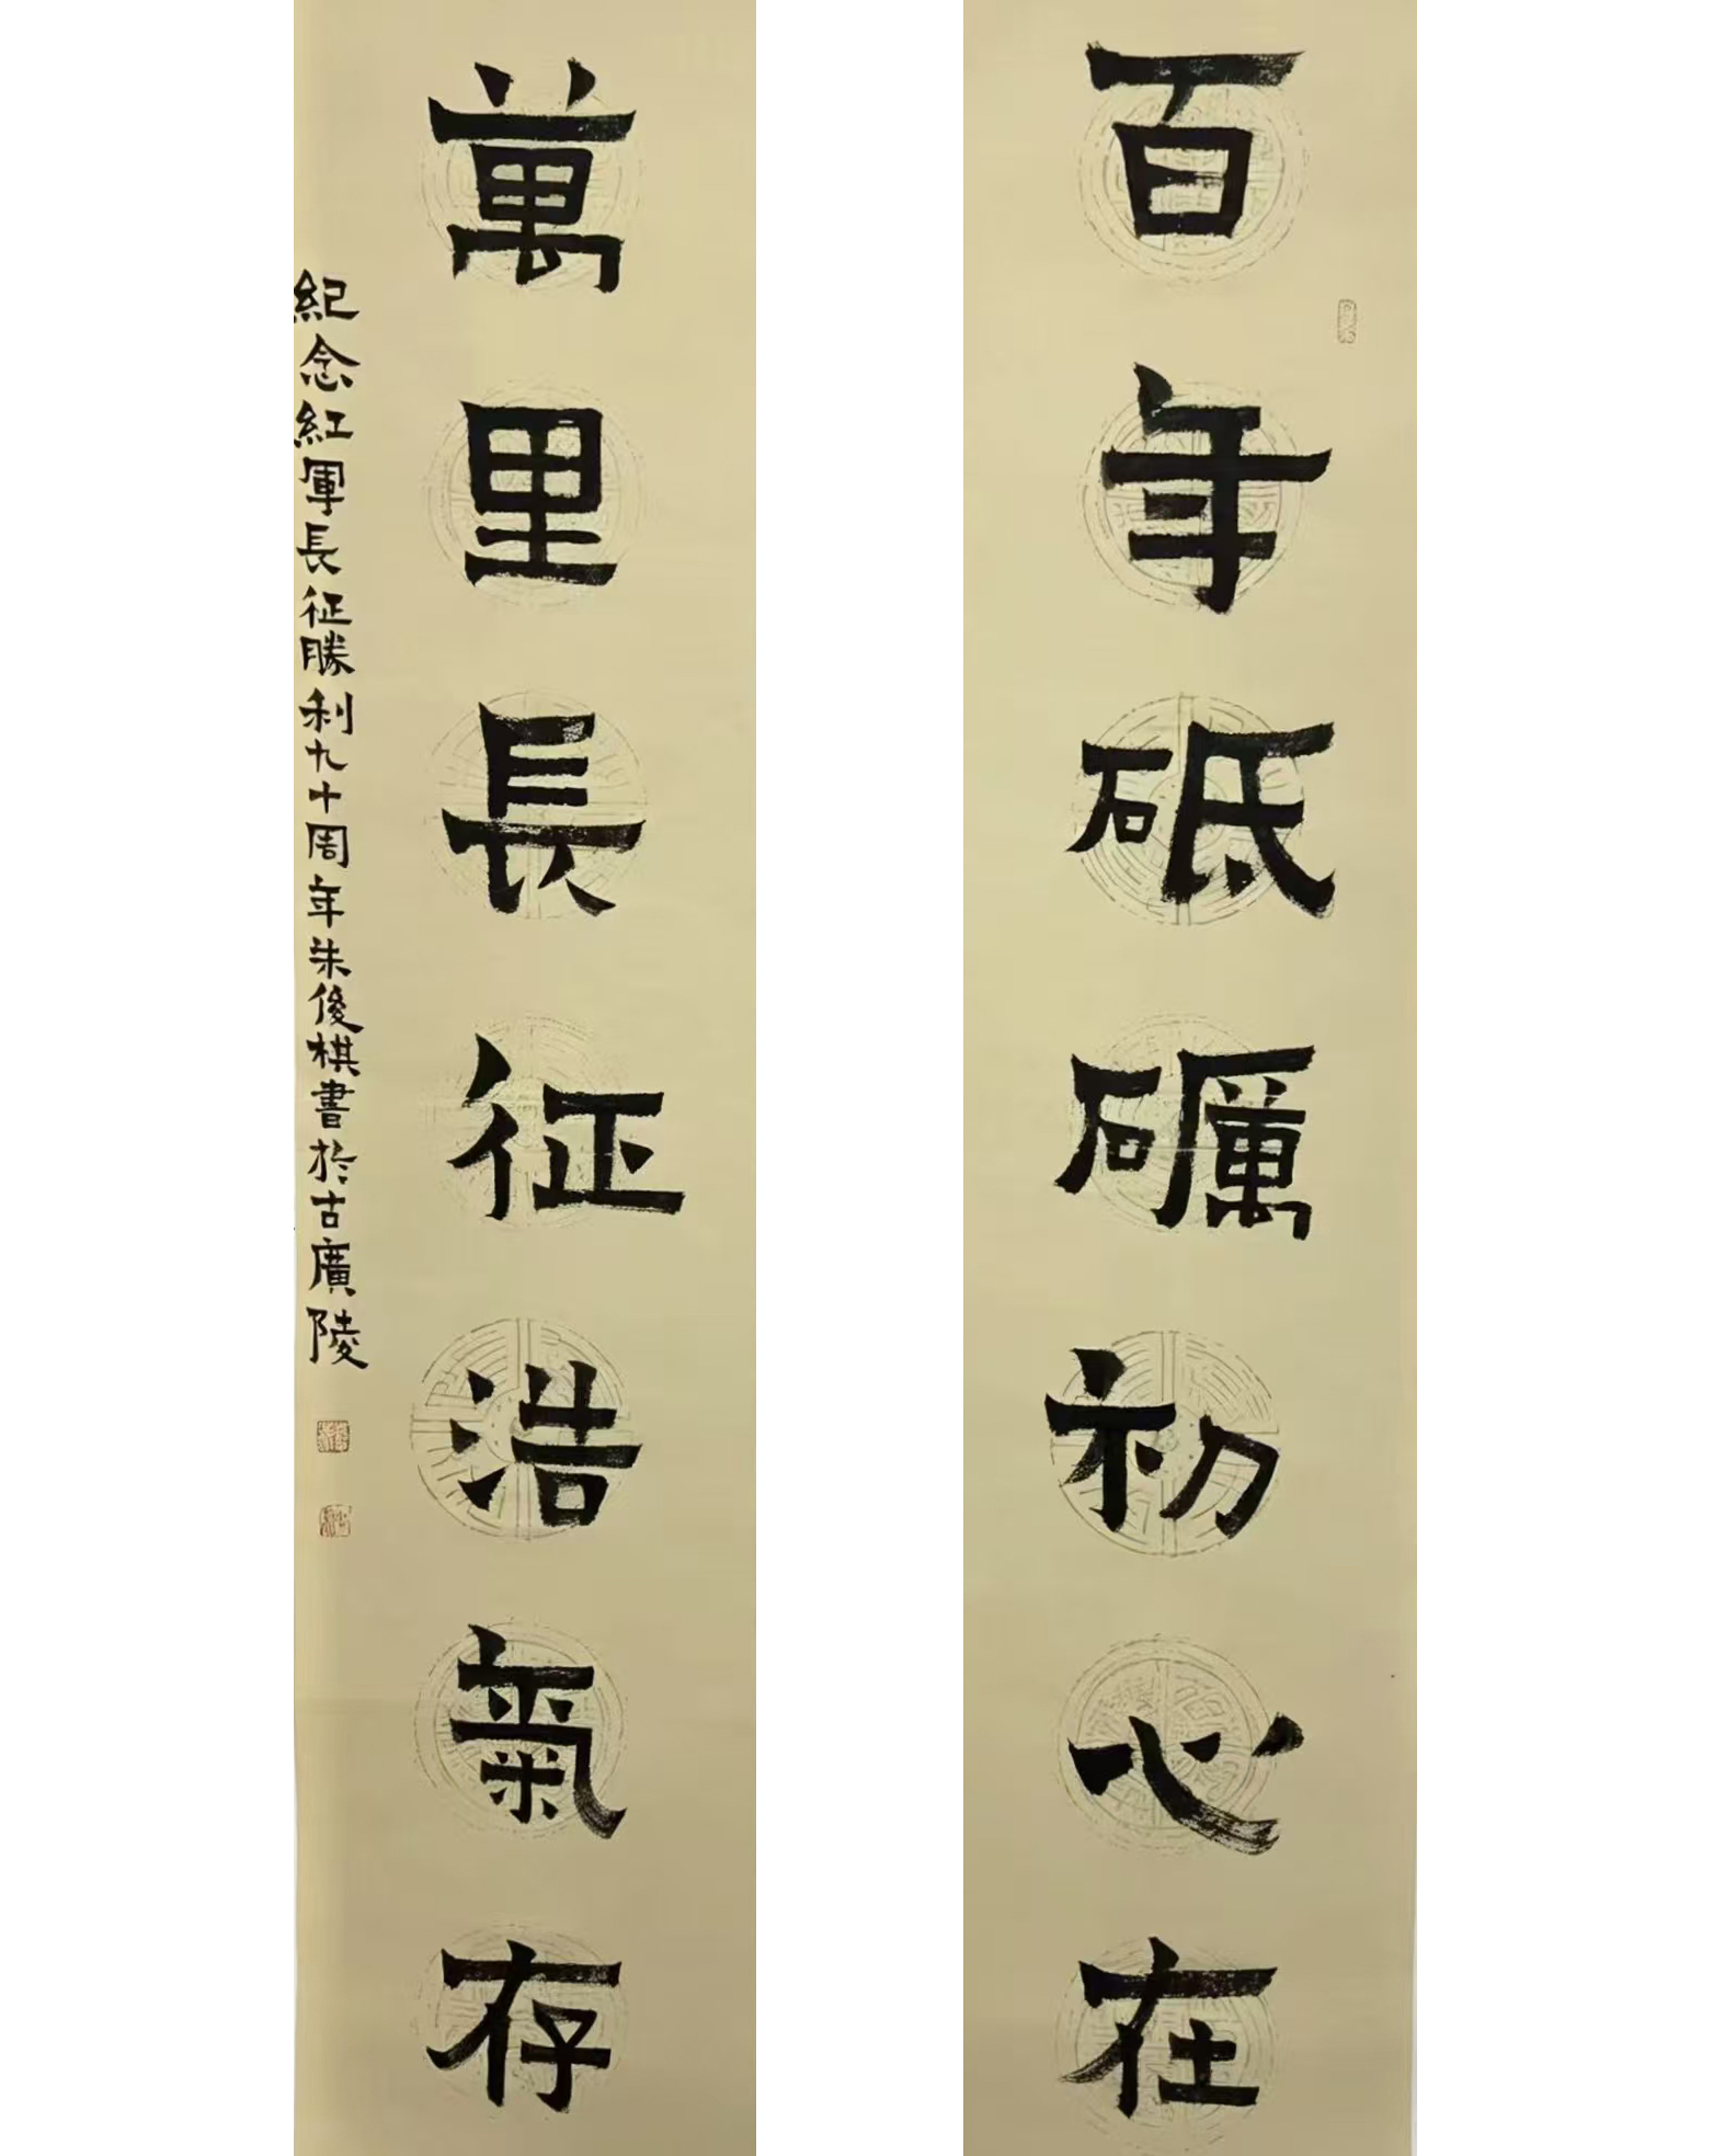 百年砥礪初心在
萬里長征浩氣存
紀念紅軍長征勝利九十周年朱俊棋書於古廣陵